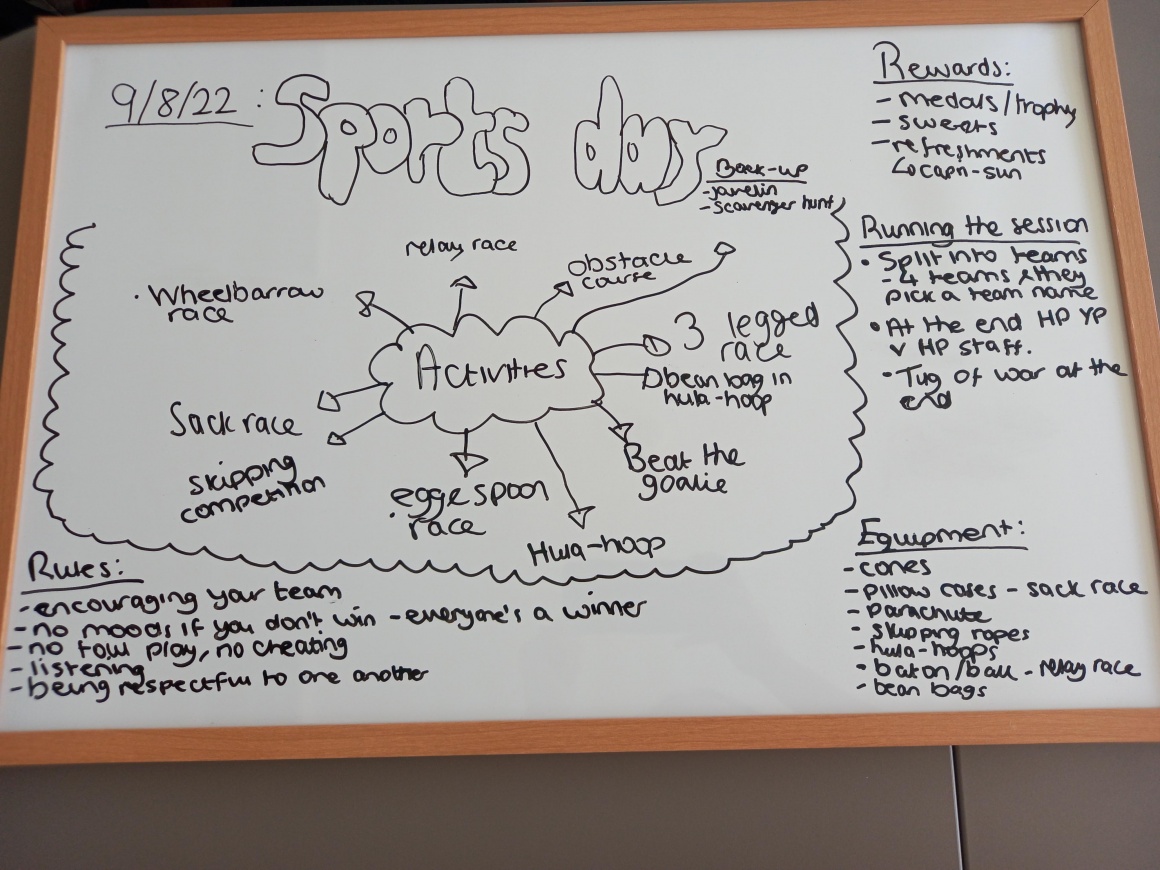 9/8/22: Sports day
Back-up
-javelin
-scavenger hunt
relay race
obstacle
course
. Wheelbarrow
race
3 legged
race
Activities
bean bag in
hula-hoop
Sack race
Beat the
goalie
skipping
competition
egg & spoon
race
Hula-hoop
Rewards:
- medals/trophy
- sweets
- refreshments
↳ capri-sun
Running the session
• Split into teams
- 4 teams & they
pick a team name
• At the end HP YP
v HP staff.
• Tug of war at the
end
Rules:
- encouraging your team
- no moods if you don't win - everyone's a winner
- no foul play, no cheating
- listening
- being respectful to one another
Equipment:
- cones
- pillow cases - sack race
- parachute
- skipping ropes
- hula-hoops
- baton/ball - relay race
- bean bags